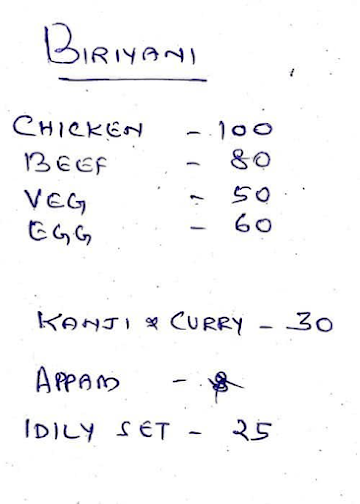 BIRIYANI
CHICKEN - 100
BEEF - 80
VEG - 50
EGG - 60
KANJI & CURRY - 30
APPAM -
IDILY SET - 25